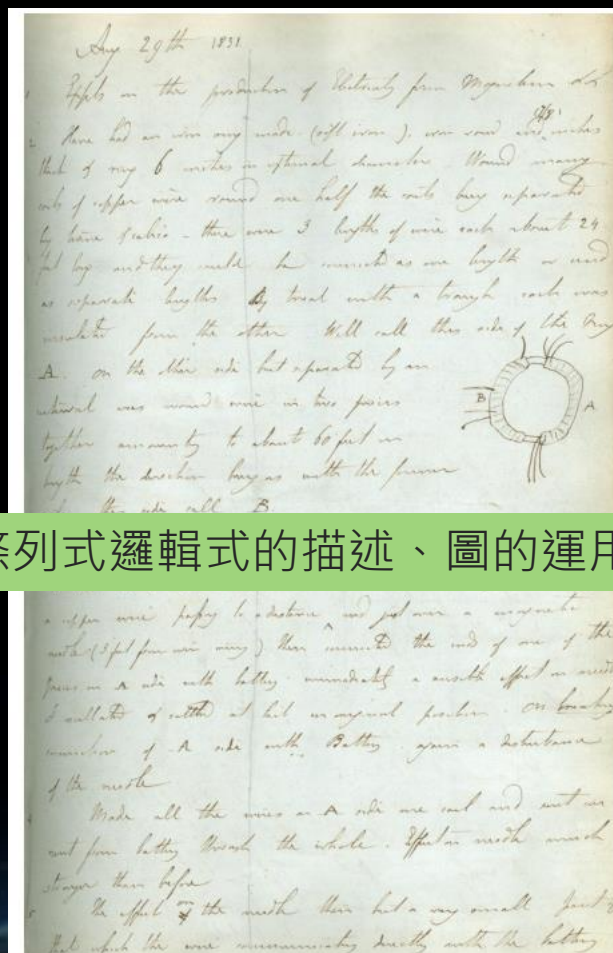 Aug 29th 1831.
1 Expts on the production of Electricity from Magnetism &c &c
2 Have had an iron ring made (soft iron), iron round and 7/8 inches
thick & ring 6 inches in external diameter. Wound many
coils of copper wire round one half the coils being separated
by twine & calico - there were 3 lengths of wire each about 24
feet long and they could be connected as one length or used
as separate lengths By trial with a trough each was
insulated from the other Will call this side of the ring
A. on the other side but separated by an
interval was wound wire in two pieces
together amounting to about 60 feet in
length the direction being as with the former
this side call B
B
A
條列式邏輯式的描述、圖的運用
a copper wire passing to a distance and just over a magnetic
needle (3 feet from iron ring) then connected the ends of one of the
pieces on A side with battery immediately a sensible effect on needle
It oscillated & settled at last in original position. On breaking
connection of A side with Battery again a disturbance
of the needle
4 Made all the wires on A side one coil and sent current
from battery through the whole. Effect on needle much
stronger than before
5 The effect on the needle then but a very small part of
that which the wire communicating directly with the battery